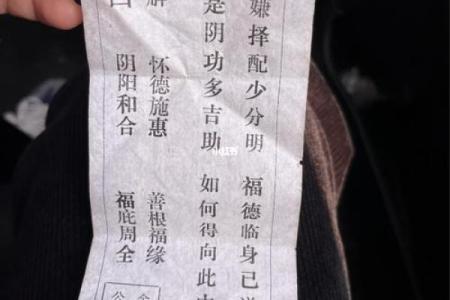 嫌择配少分明 福德临身己
是阴功多吉助 如何得向此
怀德施惠 善根福缘
阴阳和合 福庇周全
小红书